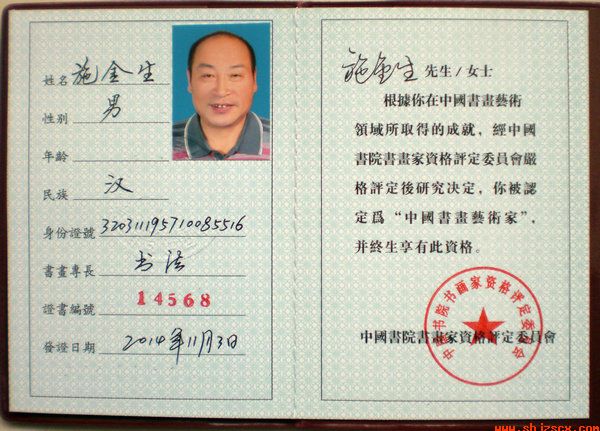 姓名 施金生
性别 男
年齡
民族 汉
身份證號 320311195710085516
書畫專長 书法
證書編號 14568
發證日期 2014年11月3日
施金生 先生/女士
根據你在中國書畫藝術
領域所取得的成就，經中國
書院書畫家資格評定委員會嚴
格評定後研究決定，你被認
定爲“中國書畫藝術家”，
并終生享有此資格。
中國書院書畫家資格評定委員會
中国书院书画家资格评定委员会
www.shjzscx.com